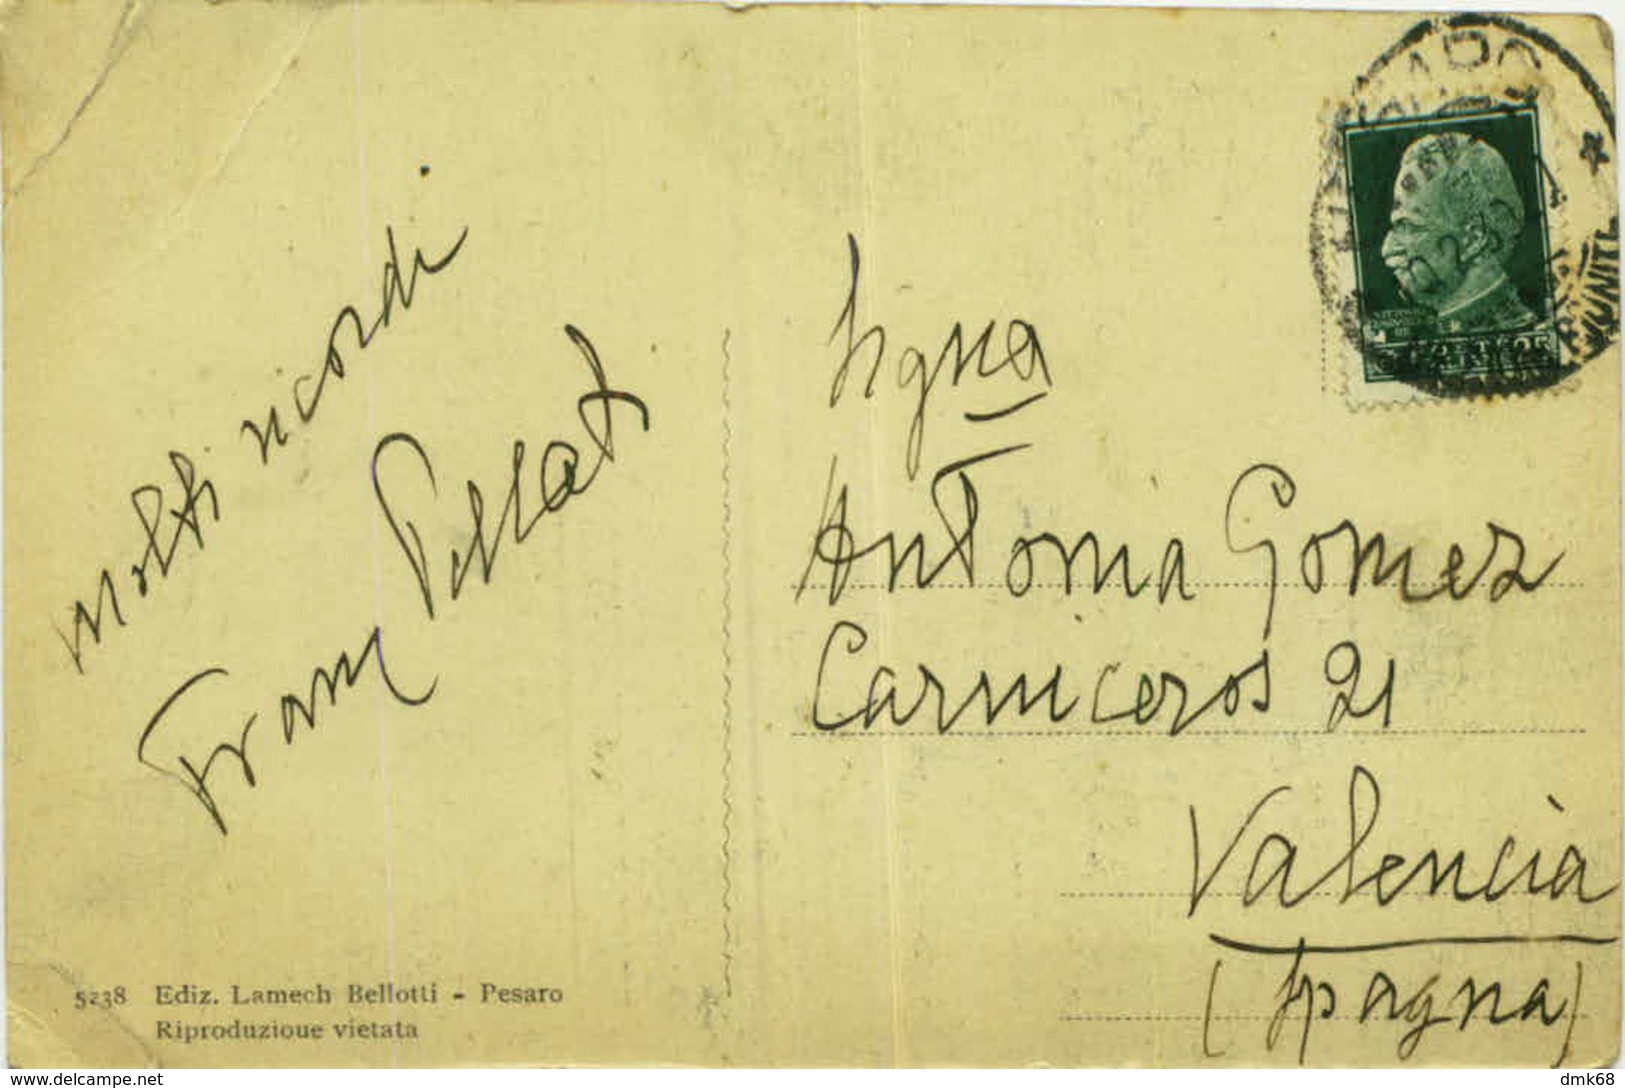 molti ricordi
Franz
Signa
Antonia Gomez
Carniceros 21
Valencia
(Spagna)
5238 Ediz. Lamech Bellotti - Pesaro
Riproduzione vietata
delcampe.net
dmk68